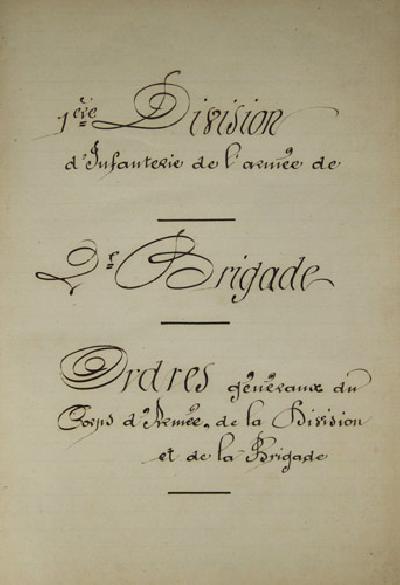 1ère Division
d'Infanterie de l'armée de
2e Brigade
Ordres généraux du
Corps d'Armée, de la Division
et de la Brigade